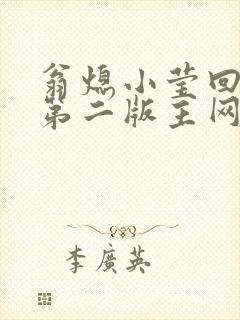 翁熄小莹回
第二版主网
李廣英